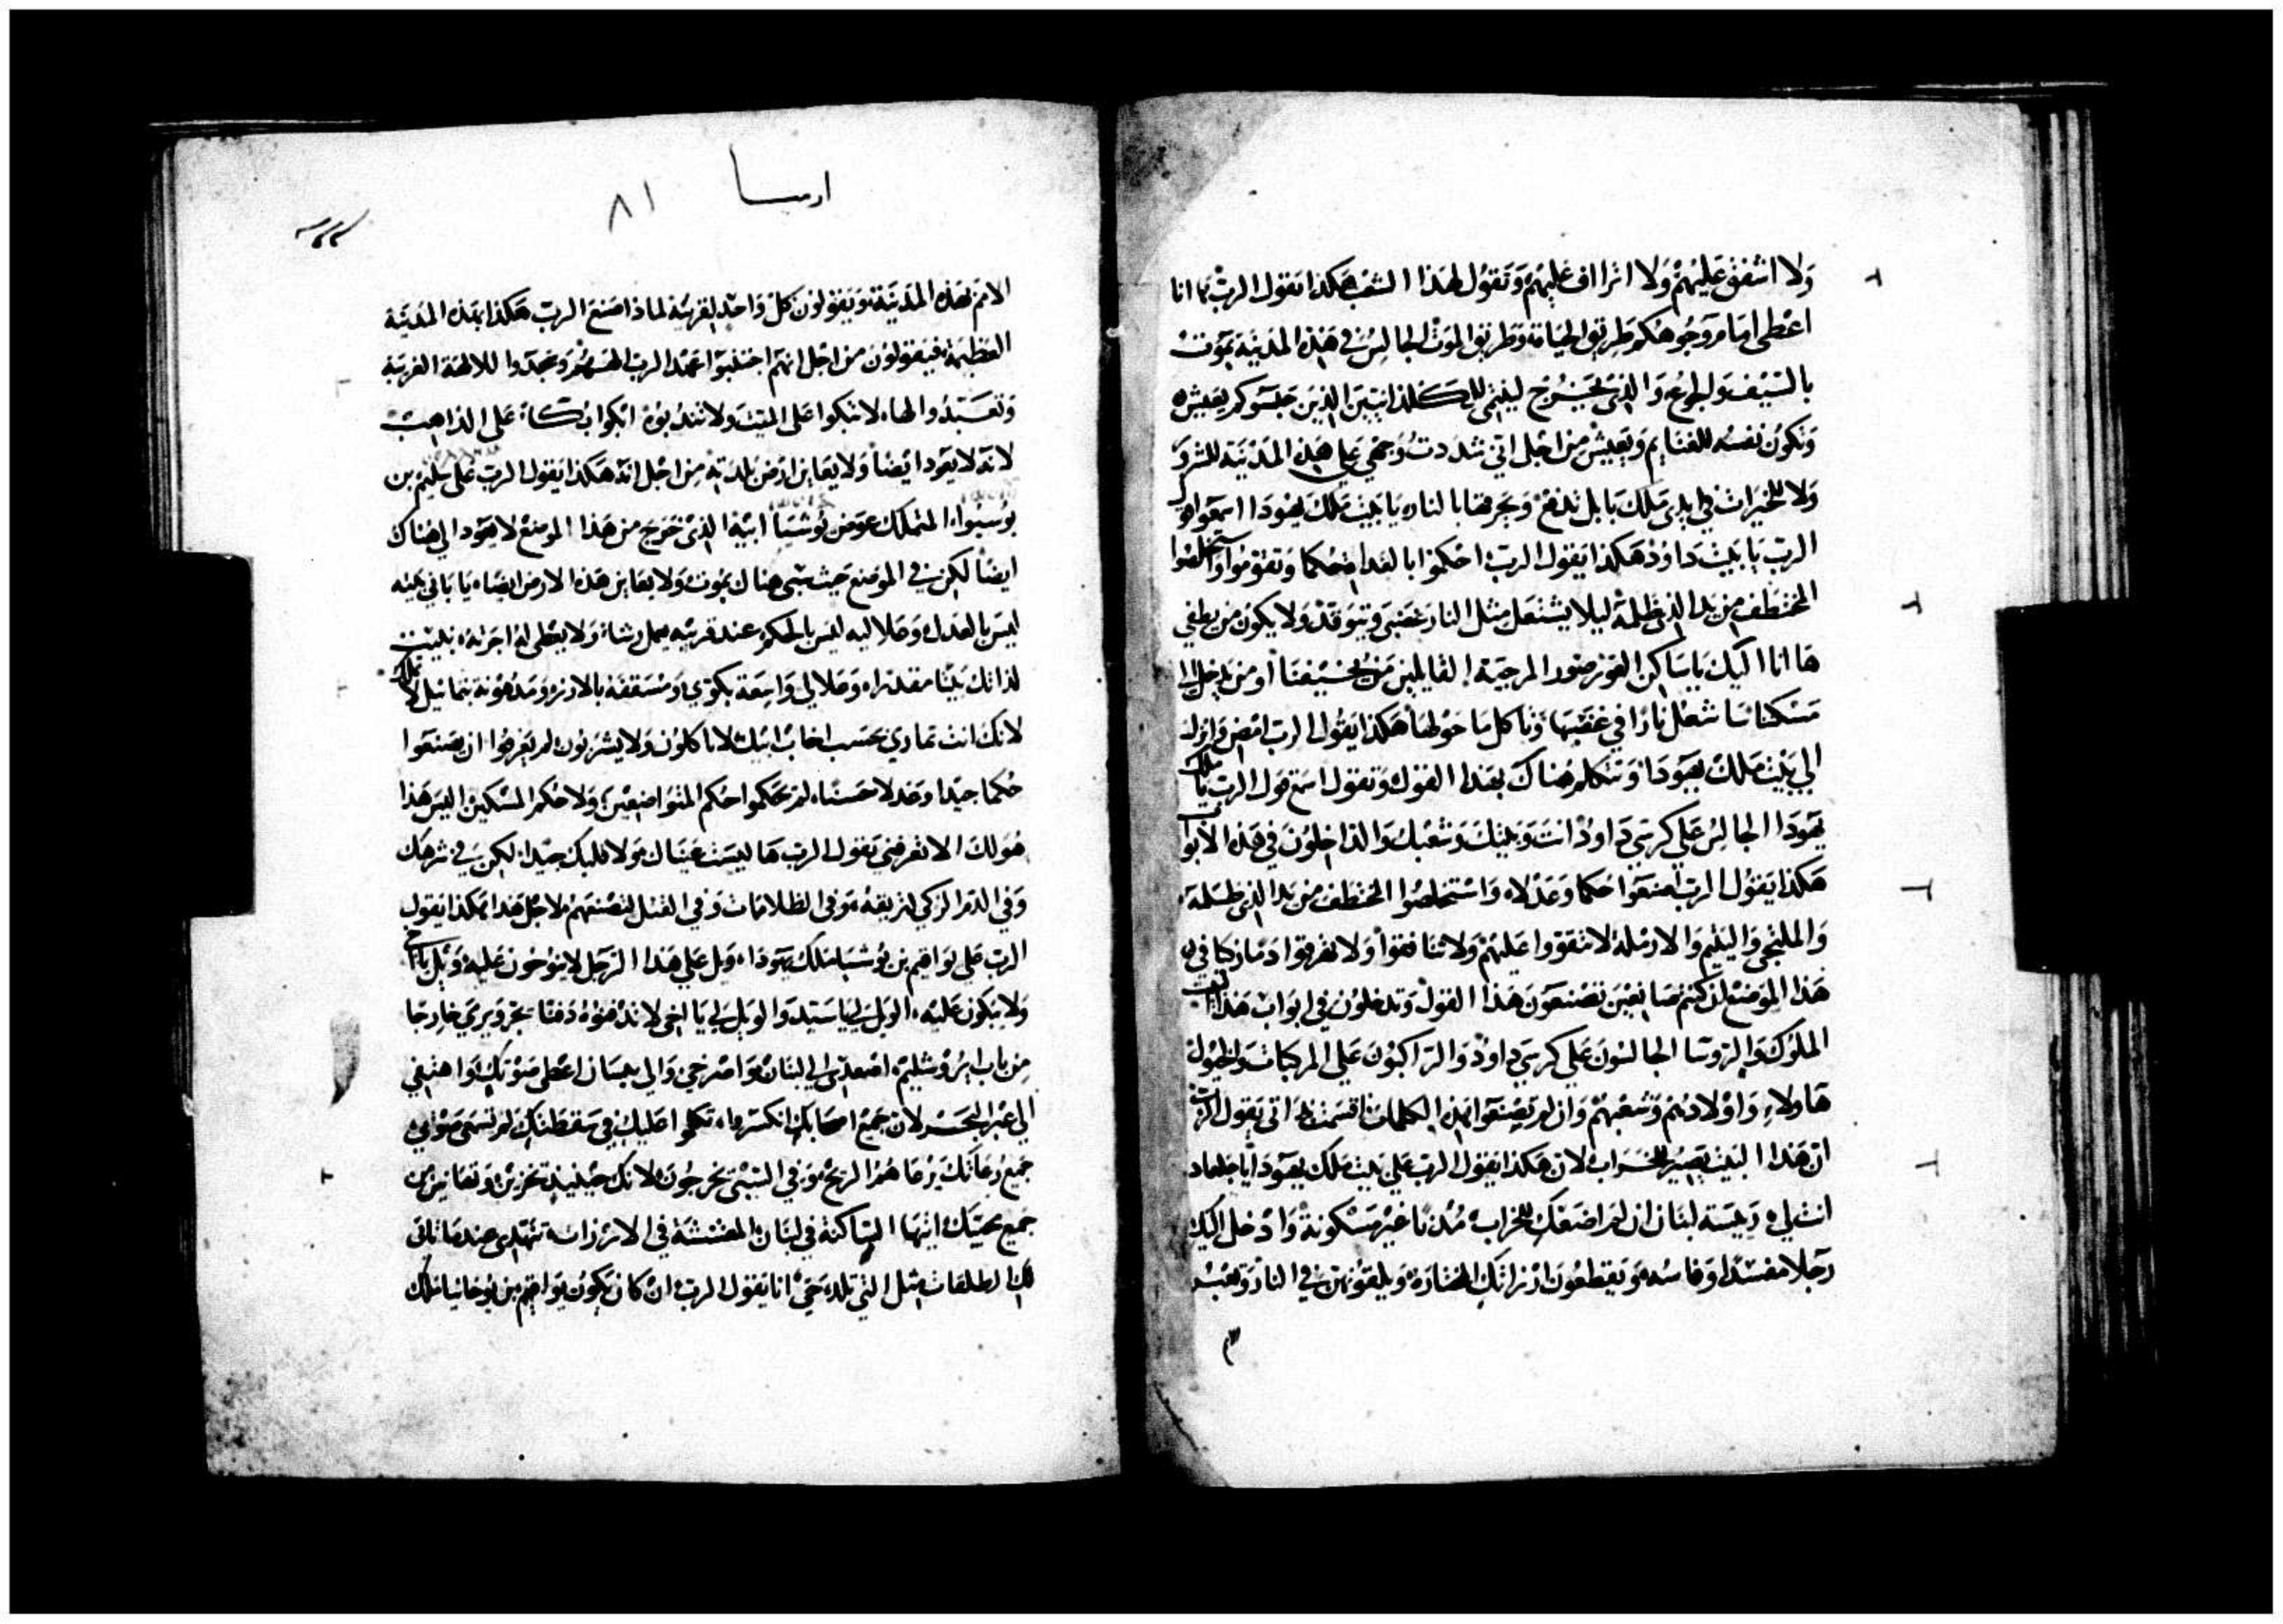 ولا اشفق عليهم ولا اترااف عليهم وتقول لهذا الشعب هكذا تقول الرب ها انا
اعطى امام وجوهكم طريق الحياة وطريق الموت الجالس في هذه المدينة يموت
بالسيف والجوع والذي يخرج لينتمى للكلدانيين الذين حبسوكم يعيش
وتكون نفسه للغنايم ويعيش من اجل اني شددت وجهي على هذه المدينة للشرور
ولا للخيرات في يدى ملك بابل تدفع ويحرقها بالنار يا بيت ملك يهودا اسمعوا قول
الرب يا بيت داوود هكذا يقول الرب احكموا بالغداة حكما وتقوموا واستخلصوا
المختطف من يد الذي ظلمه ليلا يشتعل مثل النار غضبى ويتوقد ولا يكون من يطفي
ها انا اليك يا ساكن الغور صور المرحبة القايلين من يخسفنا او من يدخل الى
مسكننا ساشعل نارا في غضبها وتاكل ما حولها هكذا يقول الرب امض وانزل
الي بيت ملك يهودا وتتكلم هناك بهذا القول وتقول اسمع قول الرب يا ملك
يهودا الجالس علي كرسي داوود انت وبيتك وشعبك والداخلون في هذه الابواب
هكذا يقول الرب اصنعوا حكما وعدلا واستخلصوا المختطف من يد الذي ظلمه
والملتجي واليتيم والارملة لا تتقووا عليهم ولا تنافقوا ولا تهرقوا دما زكيا في
هذا الموضع لان كنتم صانعين تصنعون هذا القول وتدخلون في ابواب هذا البيت
الملوك والروسا الجالسون علي كرسي داوود والراكبون علي المركبات والخيول
هاولاء واولادهم وشعبهم وان لم تصنعوا بهذه الكلمات اقسمت بذاتي يقول الرب
ان هذا البيت يصير للخراب لان هكذا يقول الرب على بيت ملك يهودا يا جلعاد
انت لي رييسة لبنان ان لم اضعك للخراب مدنا غير مسكونة وادخل اليك
رجلا مفسدا وفاسه ويقطعون ارزاتك المختارة ويلقونهن في النار وتعبر
الامم بهذه المدينة ويقولون كل واحد لقريبه لماذا صنع الرب هكذا بهذه المدينة
العظيمة فيقولون من اجل انهم اجتنبوا عهد الرب الههم وسجدوا للالهة الغريبة
وتعبدوا لها لا تبكوا على الميت ولا تندبوه ابكوا بكاء على الذاهب
لانه لا يعود ايضا ولا يعاين ارض بلدته من اجل انه هكذا يقول الرب على سليم بن
يوسيوا المتملك عوض يوشيا ابيه الذي خرج من هذا الموضع لا يعود الي هناك
ايضا لكن في الموضع حيث سبي هناك يموت ولا يعاين هذه الارض ايضا يا باني بيته
ليس بالعدل وعلاليه ليس بالحكم عند قريبه يعمل رشاء ولا يعطى له اجرته بنيت
لذاتك بيتا مقدرا وعلالي واسعة بكوي ومسقفة بالارز ومدهونة بتماثيل لا تملك
لانك انت تمادي بحسب اخاب ابيك لا ياكلون ولا يشربون لم يعرفوا ان يصنعوا
حكما جيدا وعدلا حسنا لم يحكموا حكم المتواضعين ولا حكم المسكين اليس هذا
هو لك الا تعرفني يقول الرب ها ليست عيناك ولا قلبك جيدا لكن في شرهك
وفي الدم الزكي لتريقه وفي الظلامات وفي القتل لتصنعهم لاجل هذا هكذا يقول
الرب على يواقيم بن يوشيا ملك يهودا ويل على هذا الرجل لا ينوحون عليه ويل يا اخ
ولا يبكون عليه الويل لي يا سيد والويل لي يا اخي لا ندفنوه دفنا يجر ويرمي خارجا
من باب يروشليم اصعدى الى لبنان واصرخي والى بيسان اعطى صوتك واهتفي
الي عبر البحر لان جميع اصحابك انكسروا تكلموا عليك في سقطتك لم تسمعى صوتي
جميع رعاتك يرعاهم الريح وفي السبي يخرجون لانك حينيذ تخزين وتهانين من
جميع محبيك ايتها الساكنة في لبنان المعششة في الارزات تتنهدى عندما تاتى
لك الطلقات مثل التي تلد حي انا يقول الرب ان كان يكون يواقيم بن يوحانيا ملك